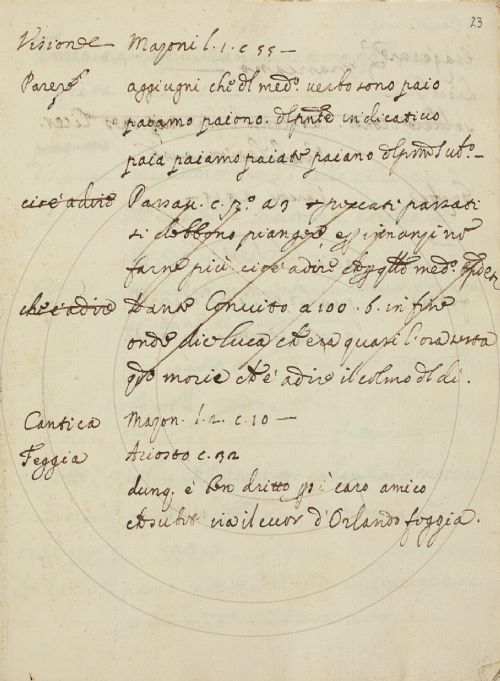 23
Visione Mazoni l. 1. c 55 —
Parere aggiugni che dl med.º verbo sono paio
paiamo paiono. dl pnte indicativo
paia paiamo paiate paiano dl pnte
cioè a dire Passau. c. 3.º a 9 peccati passati
si debbono piangere, e innanzi nõ
farne più cioè a dire med.º
che è a dire Dante Convito a 100. b. in fine
onde dice Luca che era quasi l'ora sesta
qdo morie che è a dire il colmo dl dì.
Cantica Mazon. l. 2. c. 10 —
Feggia Ariosto c. 32
dunq. è ben dritto caro amico
via il cuor d'Orlando foggia.